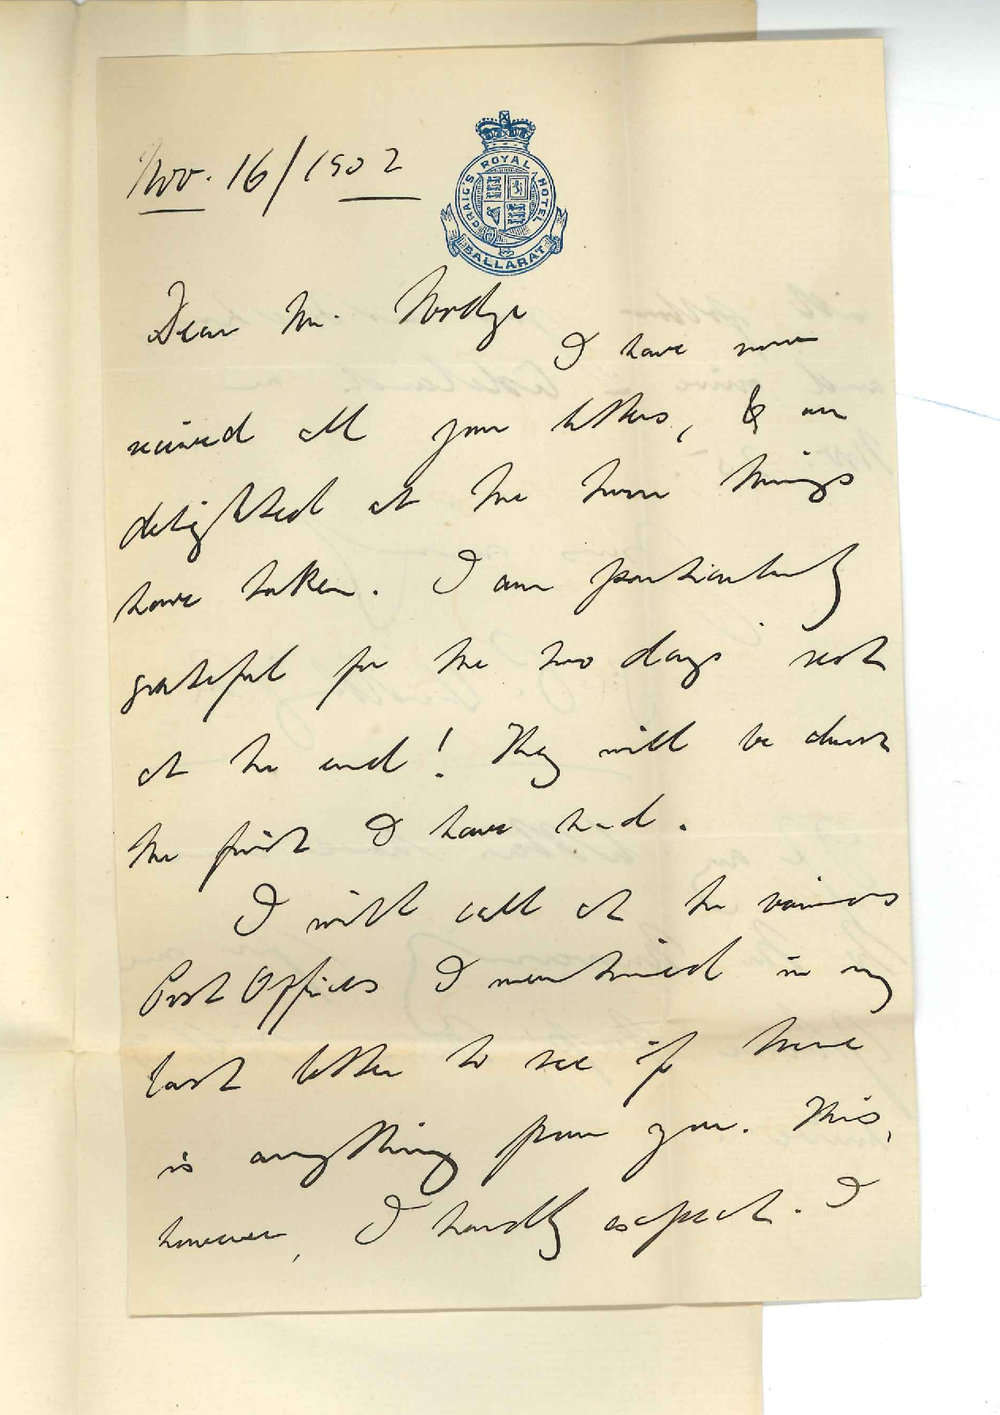 Nov. 16/1902
CRAIG'S ROYAL HOTEL
BALLARAT
Dear Mr.
I have now
received all your letters, & am
delighted at the turn things
have taken. I am particularly
grateful for the two days rest
at the end! They will be almost
the first I have had.
I will call at the various
Post Offices I mentioned in my
last letter to see if there
is anything from you. This,
however, I hardly expect. I